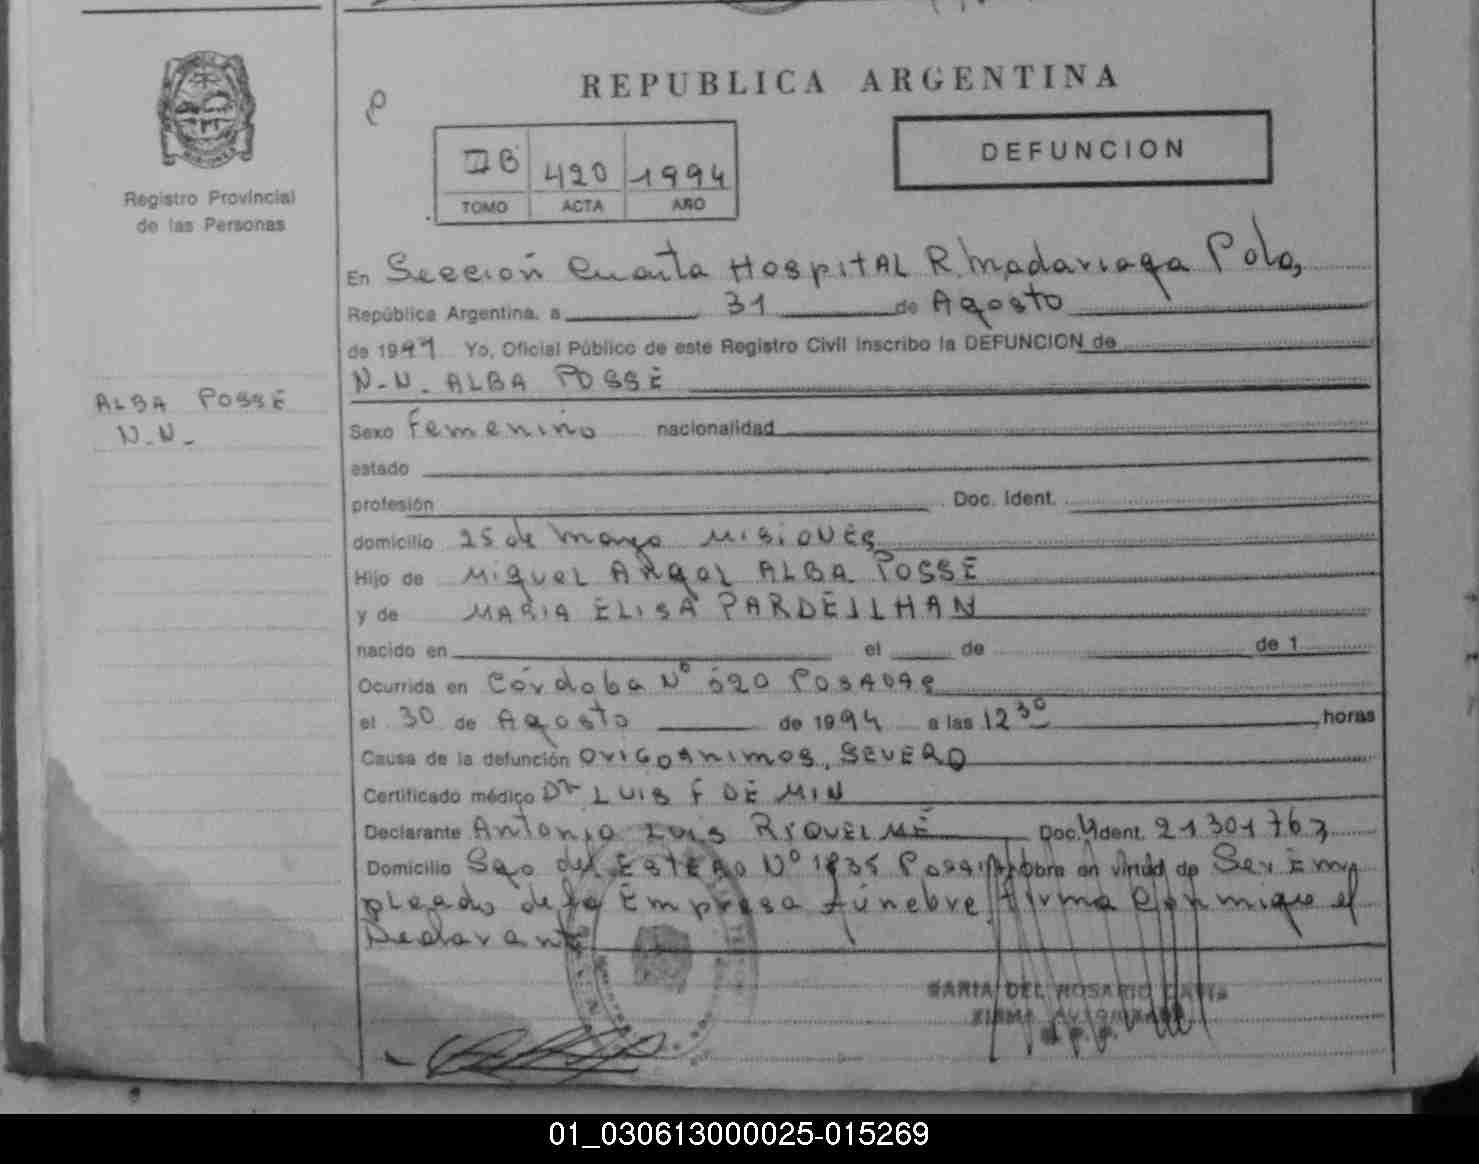 REPUBLICA ARGENTINA
IIB 420 1994
TOMO ACTA AÑO
DEFUNCION
Registro Provincial
de las Personas
En Sección Cuarta HOSPITAL R. Madariaga Pdas,
República Argentina, a 31 de Agosto
de 1994 Yo, Oficial Público de este Registro Civil inscribo la DEFUNCION de
N.N. ALBA POSSE
ALBA POSSE
N.N.
Sexo Femenino nacionalidad
estado
profesión Doc. Ident.
domicilio 25 de Mayo MISIONES
Hijo de MIGUEL ANGEL ALBA POSSE
y de MARIA ELISA PARDEILHAN
nacido en el de de 1
Ocurrida en Córdoba Nº POSADAS
el 30 de Agosto de 1994 a las 12 30 horas
Causa de la defunción SEVERO
Certificado médico Dr LUIS F DE MIN
Declarante Antonio Luis RIQUELME Doc. Ident. 21301763
Domicilio Sgo del ESTERO Nº 1835 obra en virtud de Ser Em
pleado de la Empresa fúnebre firma conmigo el
Declarante
MARIA DEL ROSARIO
FIRMA AUTORIZADA
01_030613000025-015269